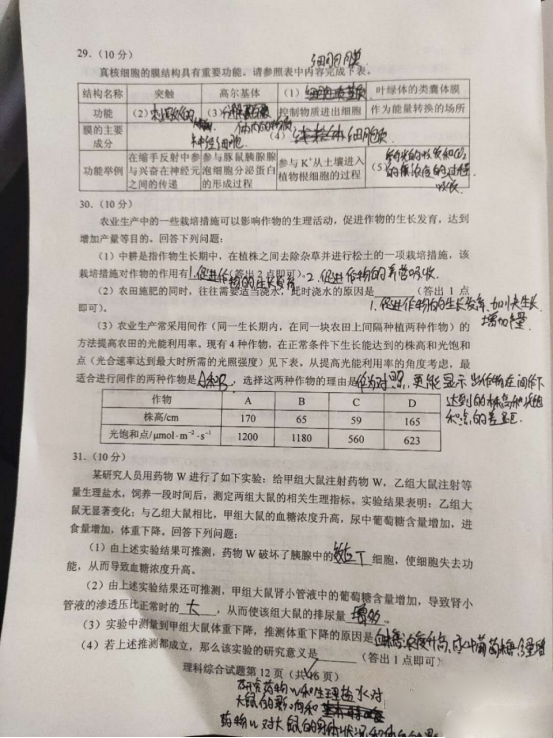 29.（10 分）
细胞膜
真核细胞的膜结构具有重要功能。请参照表中内容完成下表。
结构名称 突触 高尔基体 （1） 叶绿体的类囊体膜
功能 （2） （3） 控制物质进出细胞 作为能量转换的场所
膜的主要成分 （4）
功能举例 在缩手反射中参与兴奋在神经元之间的传递 参与豚鼠胰腺腺泡细胞分泌蛋白的形成过程 参与 K⁺从土壤进入植物根细胞的过程 （5）
30.（10 分）
农业生产中的一些栽培措施可以影响作物的生理活动，促进作物的生长发育，达到
增加产量等目的。回答下列问题：
（1）中耕是指作物生长期中，在植株之间去除杂草并进行松土的一项栽培措施，该
栽培措施对作物的作用有1.促进作物的生长发育（答出 2 点即可）。2.促进作物的营吸收.
（2）农田施肥的同时，往往需要适当浇水，此时浇水的原因是（答出 1 点
即可）。1.促进作物的生长发育,加快生长,增加产量.
（3）农业生产常采用间作（同一生长期内，在同一块农田上间隔种植两种作物）的
方法提高农田的光能利用率。现有 4 种作物，在正常条件下生长能达到的株高和光饱和
点（光合速率达到最大时所需的光照强度）见下表。从提高光能利用率的角度考虑，最
适合进行间作的两种作物是A和B，选择这两种作物的理由是作为对照,更能显示出作物在间作下
达到的株高和光饱
和点的差距.
作物 A B C D
株高/cm 170 65 59 165
光饱和点/μmol·m⁻²·s⁻¹ 1200 1180 560 623
31.（10 分）
某研究人员用药物 W 进行了如下实验：给甲组大鼠注射药物 W，乙组大鼠注射等
量生理盐水，饲养一段时间后，测定两组大鼠的相关生理指标。实验结果表明：乙组大
鼠无显著变化；与乙组大鼠相比，甲组大鼠的血糖浓度升高，尿中葡萄糖含量增加，进
食量增加，体重下降。回答下列问题：
（1）由上述实验结果可推测，药物 W 破坏了胰腺中的效应T细胞，使细胞失去功
能，从而导致血糖浓度升高。
（2）由上述实验结果还可推测，甲组大鼠肾小管液中的葡萄糖含量增加，导致肾小
管液的渗透压比正常时的大，从而使该组大鼠的排尿量增多。
（3）实验中测量到甲组大鼠体重下降，推测体重下降的原因是血糖浓度升高,尿中葡萄糖含量增
（4）若上述推测都成立，那么该实验的研究意义是（答出 1 点即可）
理科综合试题第 12 页（共16 页）
研究药物W和生理盐水对
大鼠的影响和
药物W对大鼠的身体状况